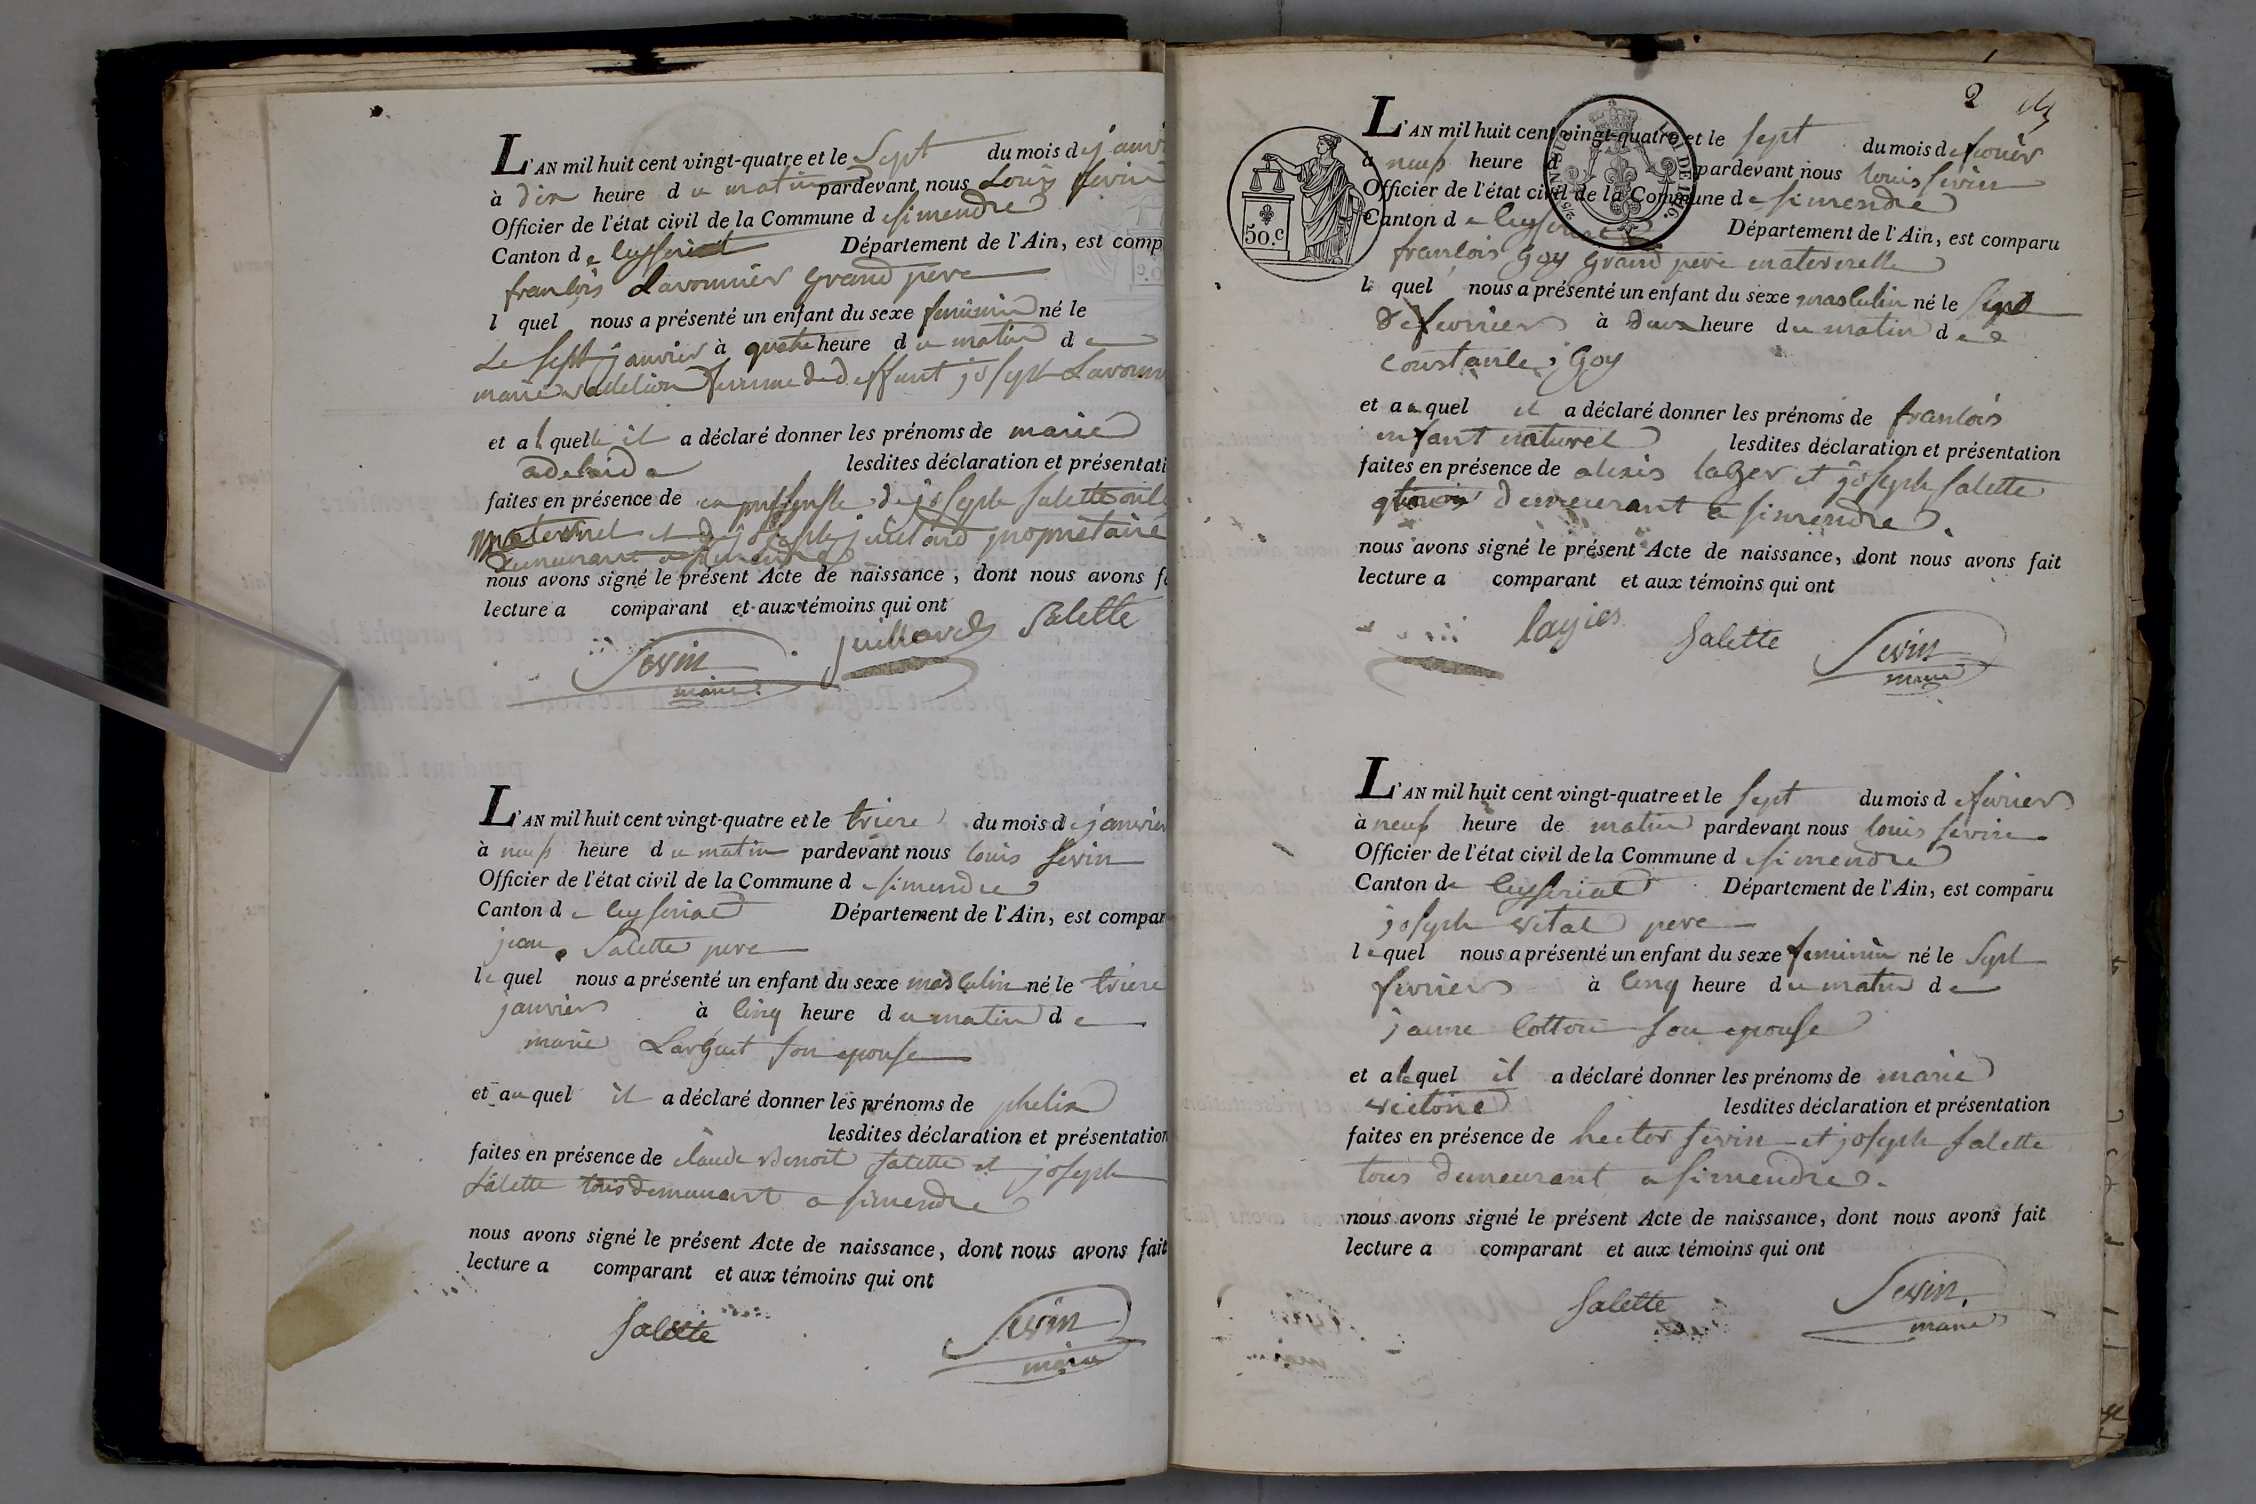 L'AN mil huit cent vingt-quatre et le Sept du mois de janvi
à dix heure du matin pardevant nous Louis sevin
Officier de l'état civil de la Commune de simendre
Canton de Ceyseriat Département de l'Ain, est comp
francois Lavonnier grand pere
l quel nous a présenté un enfant du sexe feminin né le
Le sept janvier à quatre heure du matin de
marie femme de deffunt joseph Lavonn
et a l quelle il a déclaré donner les prénoms de marie
adelaide lesdites déclaration et présentati
faites en présence de en presense de joseph salette oncle
maternel et de joseph juillard propriétaire
demeurant a simendre
nous avons signé le présent Acte de naissance, dont nous avons f
lecture a comparant et aux témoins qui ont
Sevin juillard Salette
maire
L'AN mil huit cent vingt-quatre et le triere du mois de janvier
à neuf heure du matin pardevant nous louis sevin
Officier de l'état civil de la Commune de simendre
Canton de Ceyseriat Département de l'Ain, est compar
jean Salette pere
le quel nous a présenté un enfant du sexe masculin né le triere
janvier à cinq heure du matin de
marie Larguet son epouse
et au quel il a déclaré donner les prénoms de phelix
lesdites déclaration et présentation
faites en présence de claude benoit salette et joseph
salette tous demeurant a simendre
nous avons signé le présent Acte de naissance, dont nous avons fait
lecture a comparant et aux témoins qui ont
Salette Sevin
maire
2
L'AN mil huit cent vingt-quatre et le sept du mois de
à neuf heure d pardevant nous louis sevin
Officier de l'état civil de la Commune de simendre
Canton de Ceyseriat Département de l'Ain, est comparu
50.c
LOI DE 1816.
francois Goy Grand pere maternelle
le quel nous a présenté un enfant du sexe masculin né le sept
de fevrier à deux heure du matin de
constance Goy
et au quel il a déclaré donner les prénoms de francois
enfant naturel lesdites déclaration et présentation
faites en présence de alexis lager et joseph salette
demeurant a simendre.
nous avons signé le présent Acte de naissance, dont nous avons fait
lecture a comparant et aux témoins qui ont
lagies Salette Sevin
maire
L'AN mil huit cent vingt-quatre et le sept du mois de fevrier
à neuf heure de matin pardevant nous louis sevin
Officier de l'état civil de la Commune de simendre
Canton de Ceyseriat Département de l'Ain, est comparu
joseph vital pere
le quel nous a présenté un enfant du sexe feminin né le sept
fevrier à cinq heure du matin de
janne Cotton son epouse
et a la quel il a déclaré donner les prénoms de marie
victoire lesdites déclaration et présentation
faites en présence de hector sevin et joseph salette
tous demeurant a simendre.
nous avons signé le présent Acte de naissance, dont nous avons fait
lecture a comparant et aux témoins qui ont
Salette Sevin
maire